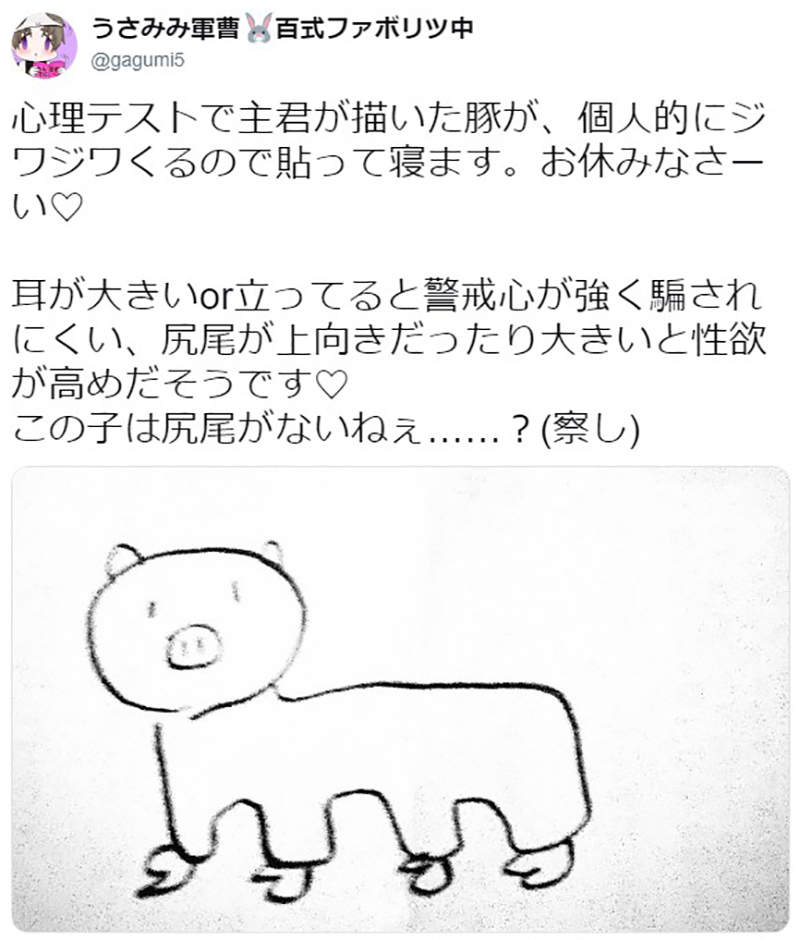 うさみみ軍曹🐰百式ファボリツ中
@gagumi5
心理テストで主君が描いた豚が、個人的にジ
ワジワくるので貼って寝ます。お休みなさー
い♡
耳が大きいor立ってると警戒心が強く騙され
にくい、尻尾が上向きだったり大きいと性欲
が高めだそうです♡
この子は尻尾がないねぇ……？(察し)